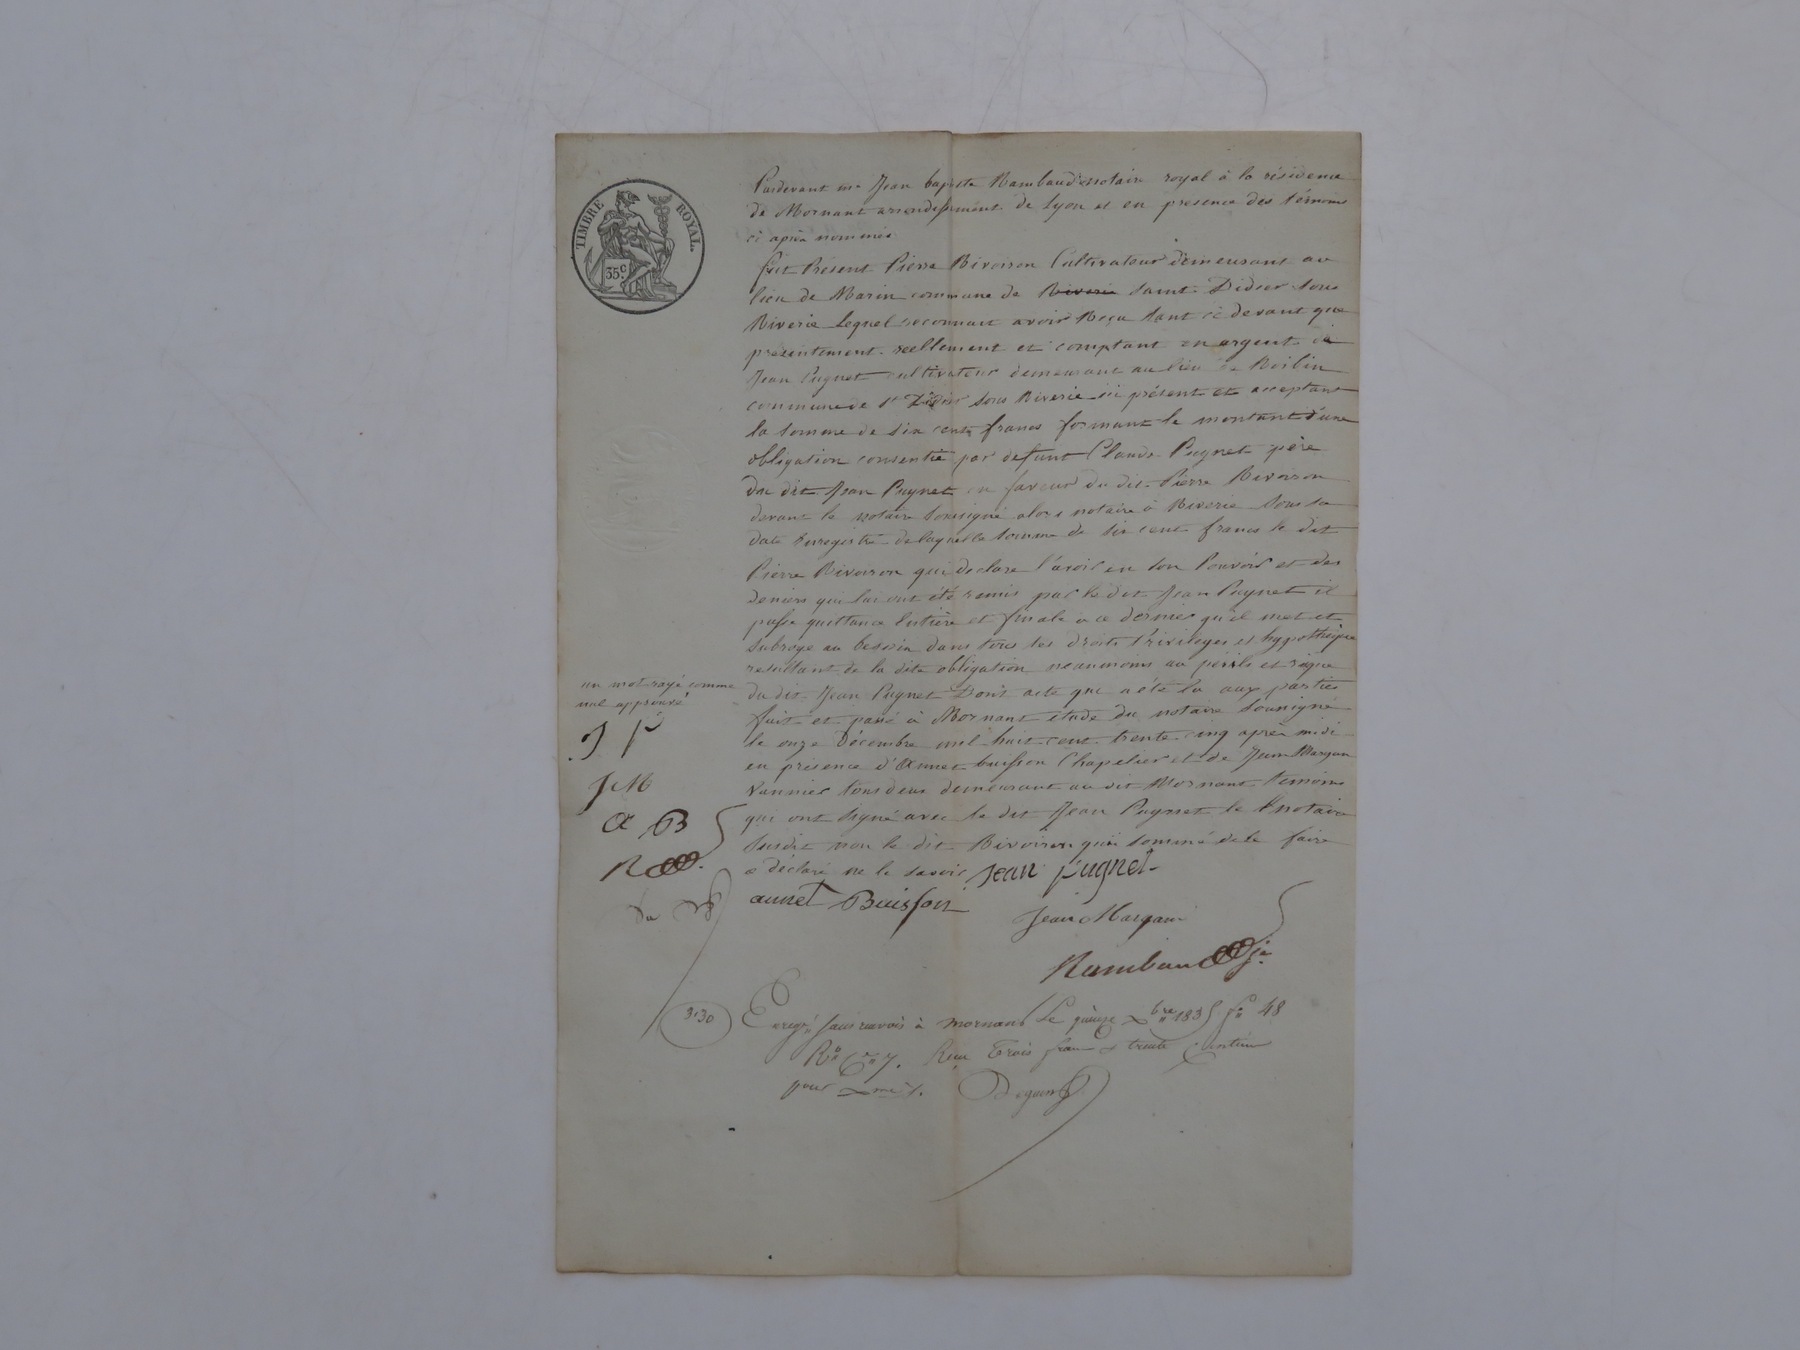 TIMBRE ROYAL
35 c.
Pardevant me Jean baptiste Rambaud notaire royal à la résidence
de Mornant arrondissement de Lyon et en presence des témoins
ci après nommés
fut Présent Pierre Rivoiron Cultivateur demeurant au
lieu de Marin commune de Riverie saint Didier sous
Riverie Lequel reconnait avoir Reçu tant ci devant que
presentement réellement et comptant en argent de
Jean Pugnet cultivateur demeurant au lieu de
commune de St Didier sous Riverie ici présent et acceptant
la somme de six cents francs formant le montant d'une
obligation consentie par defunt Claude Pugnet père
du dit Jean Pugnet en faveur du dit Pierre Rivoiron
devant le notaire soussigné alors notaire à Riverie sous sa
date Enregistré de laquelle somme de six cent francs le dit
Pierre Rivoiron qui declare l'avoir en son Pouvoir et des
deniers qui lui ont été remis par le dit Jean Pugnet il
passe quittance Entière et finale a ce dernier qu'il met et
subroge au besoin dans tous les droits Privileges et hypothèque
resultant de la dite obligation neanmoins au périls et risque
du dit Jean Pugnet Dont acte qui a été lu aux parties
fait et passé à Mornant étude du notaire soussigné
le onze Décembre mil huit cent trente cinq après midi
en présence d'annet buisson Chapelier et de Jean Margan
Vannier tous deux demeurant au dit Mornant témoins
qui ont signé avec le dit Jean Pugnet le notaire
susdit non le dit Rivoiron qui sommé de le faire
a déclaré ne le savoir Jean Pugnet
annet Buisson
Jean Margan
Rambaud jne
un mot rayé comme
nul approuvé
J P
J M
a B
R
3.30
Enregé sans renvois à mornant Le quinze Xbre 1835 fo 48
Ro Ce 7. Reçu Trois francs trente Centimes
pour